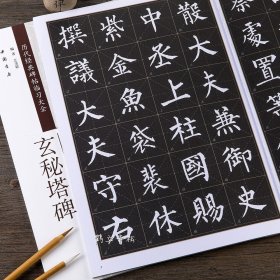 散大夫兼御史
中丞上柱國賜
紫金魚袋裴休
撰議大夫守右
历代经典碑帖临习大全
玄秘塔碑